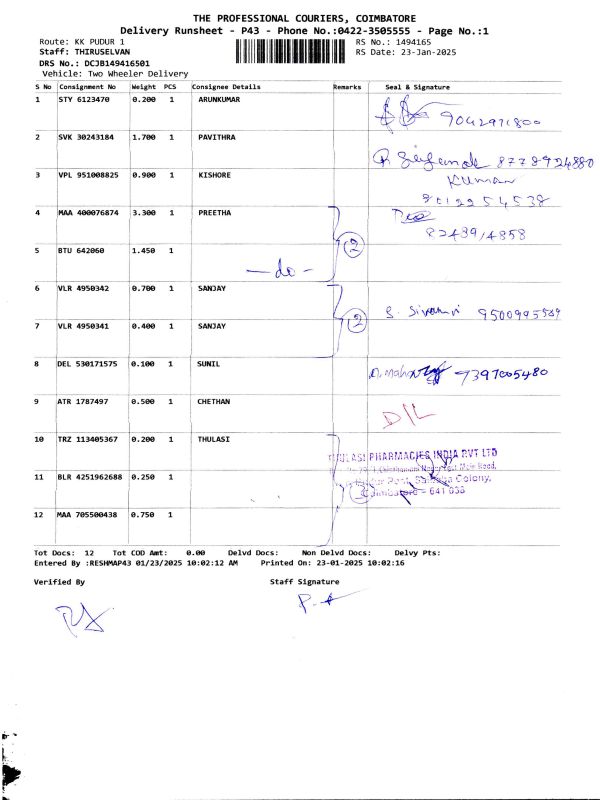 THE PROFESSIONAL COURIERS, COIMBATORE
Delivery Runsheet - P43 - Phone No.:0422-3505555 - Page No.:1
Route: KK PUDUR 1
RS No.: 1494165
Staff: THIRUSELVAN
RS Date: 23-Jan-2025
DRS No.: DCJB149416501
Vehicle: Two Wheeler Delivery
S No Consignment No Weight PCS Consignee Details Remarks Seal & Signature
1 STY 6123470 0.200 1 ARUNKUMAR
9042971800
2 SVK 30243184 1.700 1 PAVITHRA
8778924880
3 VPL 951008825 0.900 1 KISHORE
Kumar
4 MAA 400076874 3.300 1 PREETHA
5 BTU 642060 1.450 1
2
-do-
6 VLR 4950342 0.700 1 SANJAY
7 VLR 4950341 0.400 1 SANJAY
2
8 DEL 530171575 0.100 1 SUNIL
7397005480
9 ATR 1787497 0.500 1 CHETHAN
D/L
10 TRZ 113405367 0.200 1 THULASI
THULASI PHARMACIES INDIA PVT LTD
11 BLR 4251962688 0.250 1
Colony,
Coimbatore - 641 038
12 MAA 705500438 0.750 1
Tot Docs: 12 Tot COD Amt: 0.00 Delvd Docs: Non Delvd Docs: Delvy Pts:
Entered By :RESHMAP43 01/23/2025 10:02:12 AM Printed On: 23-01-2025 10:02:16
Verified By Staff Signature